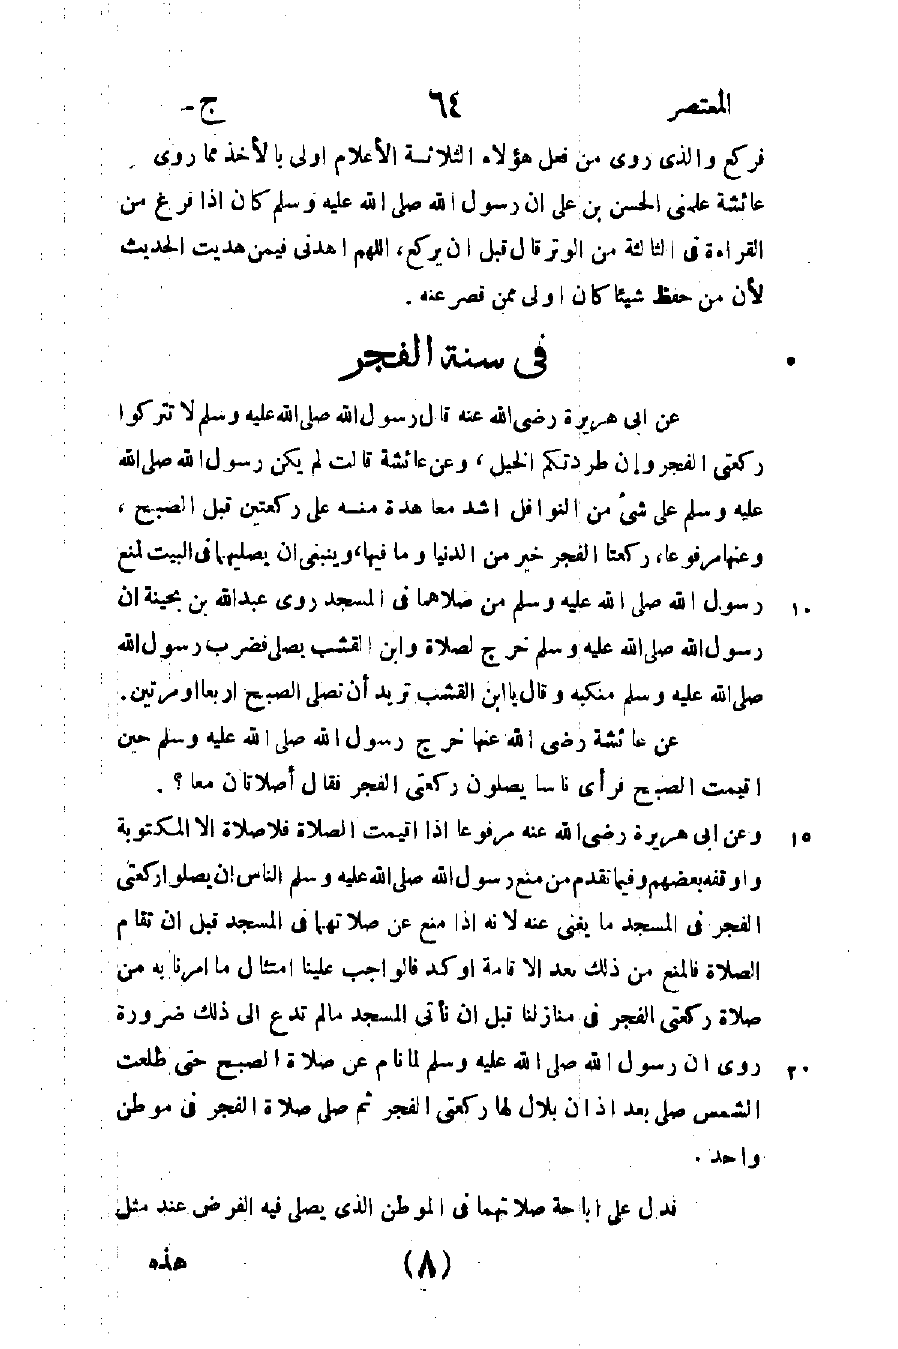 المعتصر ٦٤ ج-
فركع والذى روى من فعل هؤلاء الثلاثة الأعلام اولى بالأخذ مما روى
عائشة علمنى الحسن بن على ان رسول الله صلى الله عليه وسلم كان اذا فرغ من
القراءة فى الثالثة من الوتر قال قبل ان يركع، اللهم اهدنى فيمن هديت الحديث
لأن من حفظ شيئا كان اولى ممن قصر عنه .
فى سنة الفجر
عن ابى هريرة رضى الله عنه قال رسول الله صلى الله عليه وسلم لا تتركوا
ركعتى الفجر وإن طردتكم الخيل، وعن عائشة قالت لم يكن رسول الله صلى الله
عليه وسلم على شئ من النوافل اشد معاهدة منه على ركعتين قبل الصبح ،
وعنها مرفوعا، ركعتا الفجر خير من الدنيا وما فيها، وينبغى ان يصليهما فى البيت لمنع
رسول الله صلى الله عليه وسلم من صلاهما فى المسجد روى عبدالله بن بحينة ان ١٠
رسول الله صلى الله عليه وسلم خرج لصلاة وابن القشب يصلى فضرب رسول الله
صلى الله عليه وسلم منكبه وقال يا ابن القشب تريد أن تصلى الصبح اربعا او مرتين.
عن عائشة رضى الله عنها خرج رسول الله صلى الله عليه وسلم حين
اقيمت الصبح فرأى ناسا يصلون ركعتى الفجر فقال أصلاتان معا ؟ .
وعن ابى هريرة رضى الله عنه مرفوعا اذا اقيمت الصلاة فلا صلاة الا المكتوبة ١٥
واوقفه بعضهم وفيما تقدم من منع رسول الله صلى الله عليه وسلم الناس ان يصلوا ركعتى
الفجر فى المسجد ما يغنى عنه لانه اذا منع عن صلاتهما فى المسجد قبل ان تقام
الصلاة فالمنع من ذلك بعد الاقامة اوكد فالواجب علينا امتثال ما امرنا به من
صلاة ركعتى الفجر فى منازلنا قبل ان نأتى المسجد مالم تدع الى ذلك ضرورة
روى ان رسول الله صلى الله عليه وسلم لما نام عن صلاة الصبح حتى طلعت ٢٠
الشمس صلى بعد اذان بلال لها ركعتى الفجر ثم صلى صلاة الفجر فى موطن
واحد .
فدل على اباحة صلاتهما فى الموطن الذى يصلى فيه الفرض عند مثل
(٨) هذه